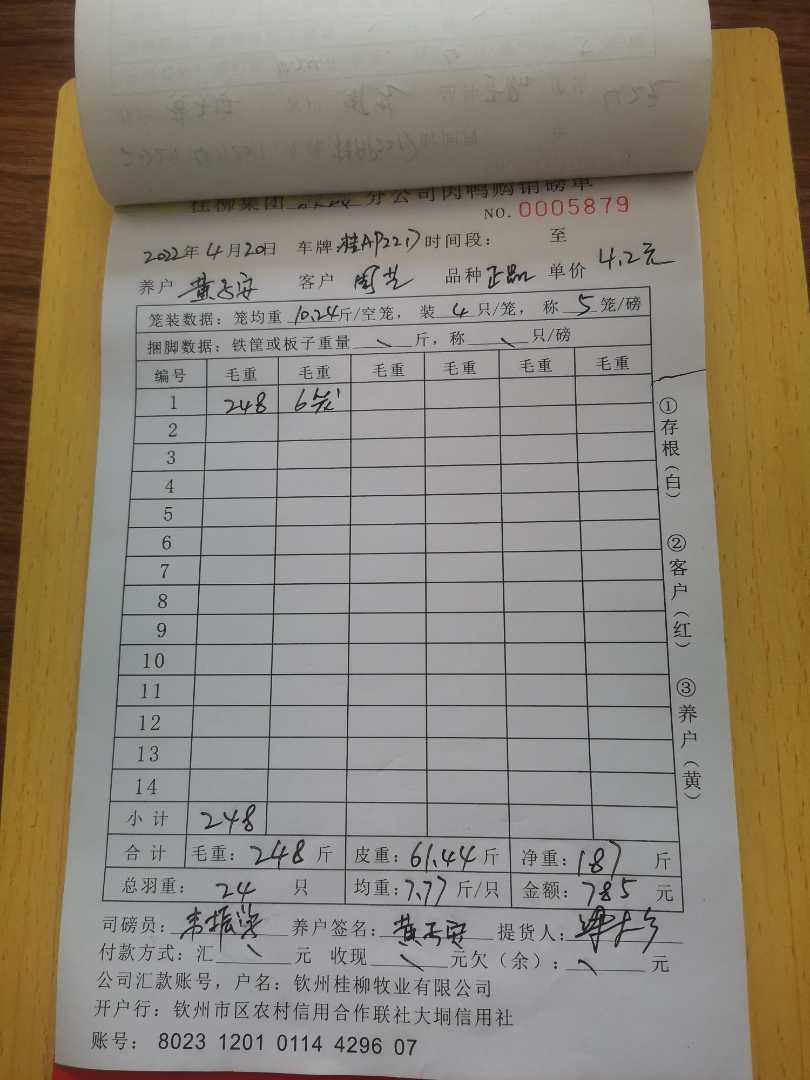 桂柳集团 分公司肉鸭购销磅单
NO. 0005879
2022年4月20日 车牌:桂AP2217 时间段: 至
养户 客户 周芝 品种 正品 单价 4.2元
笼装数据:笼均重 10.24 斤/空笼, 装 4 只/笼, 称 5 笼/磅
捆脚数据:铁筐或板子重量 \ 斤,称 \ 只/磅
编号 毛重 毛重 毛重 毛重 毛重 毛重
1 248 6笼
2
3
4
5
6
7
8
9
10
11
12
13
14
小计 248
合计 毛重: 248 斤 皮重: 61.44 斤 净重: 187 斤
总羽重: 24 只 均重: 7.77 斤/只 金额: 785 元
司磅员: 韦振 养户签名: 提货人:
付款方式:汇 \ 元 收现 \ 元欠(余): \ 元
公司汇款账号,户名:钦州桂柳牧业有限公司
开户行:钦州市区农村信用合作联社大垌信用社
账号: 8023 1201 0114 4296 07
①存根(白)
②客户(红)
③养户(黄)